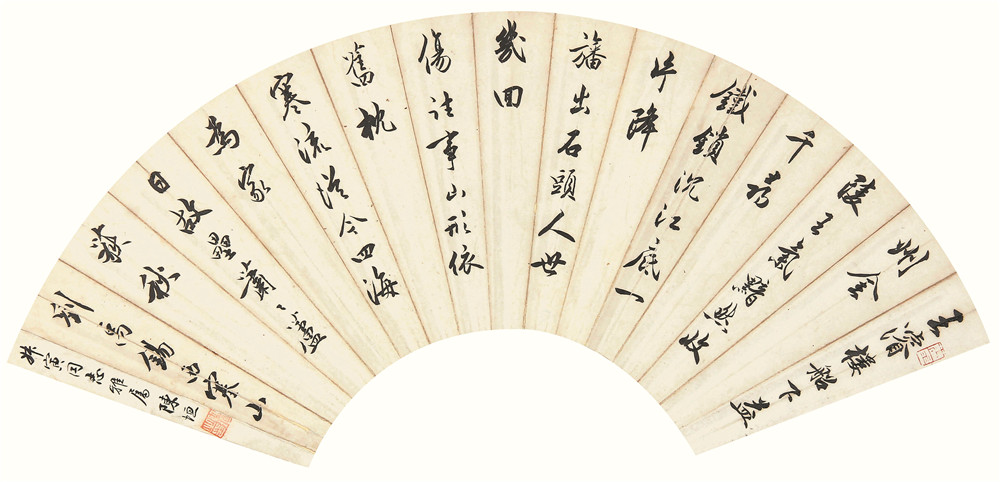 王濬樓船下益
州金
陵王氣黯然收
千尋
鐵鎖沉江底一
片降
旛出石頭人世
幾回
傷往事山形依
舊枕
寒流從今四海
為家
日故壘蕭〻蘆
荻秋
劉禹錫西塞山
同志雅屬 陳垣